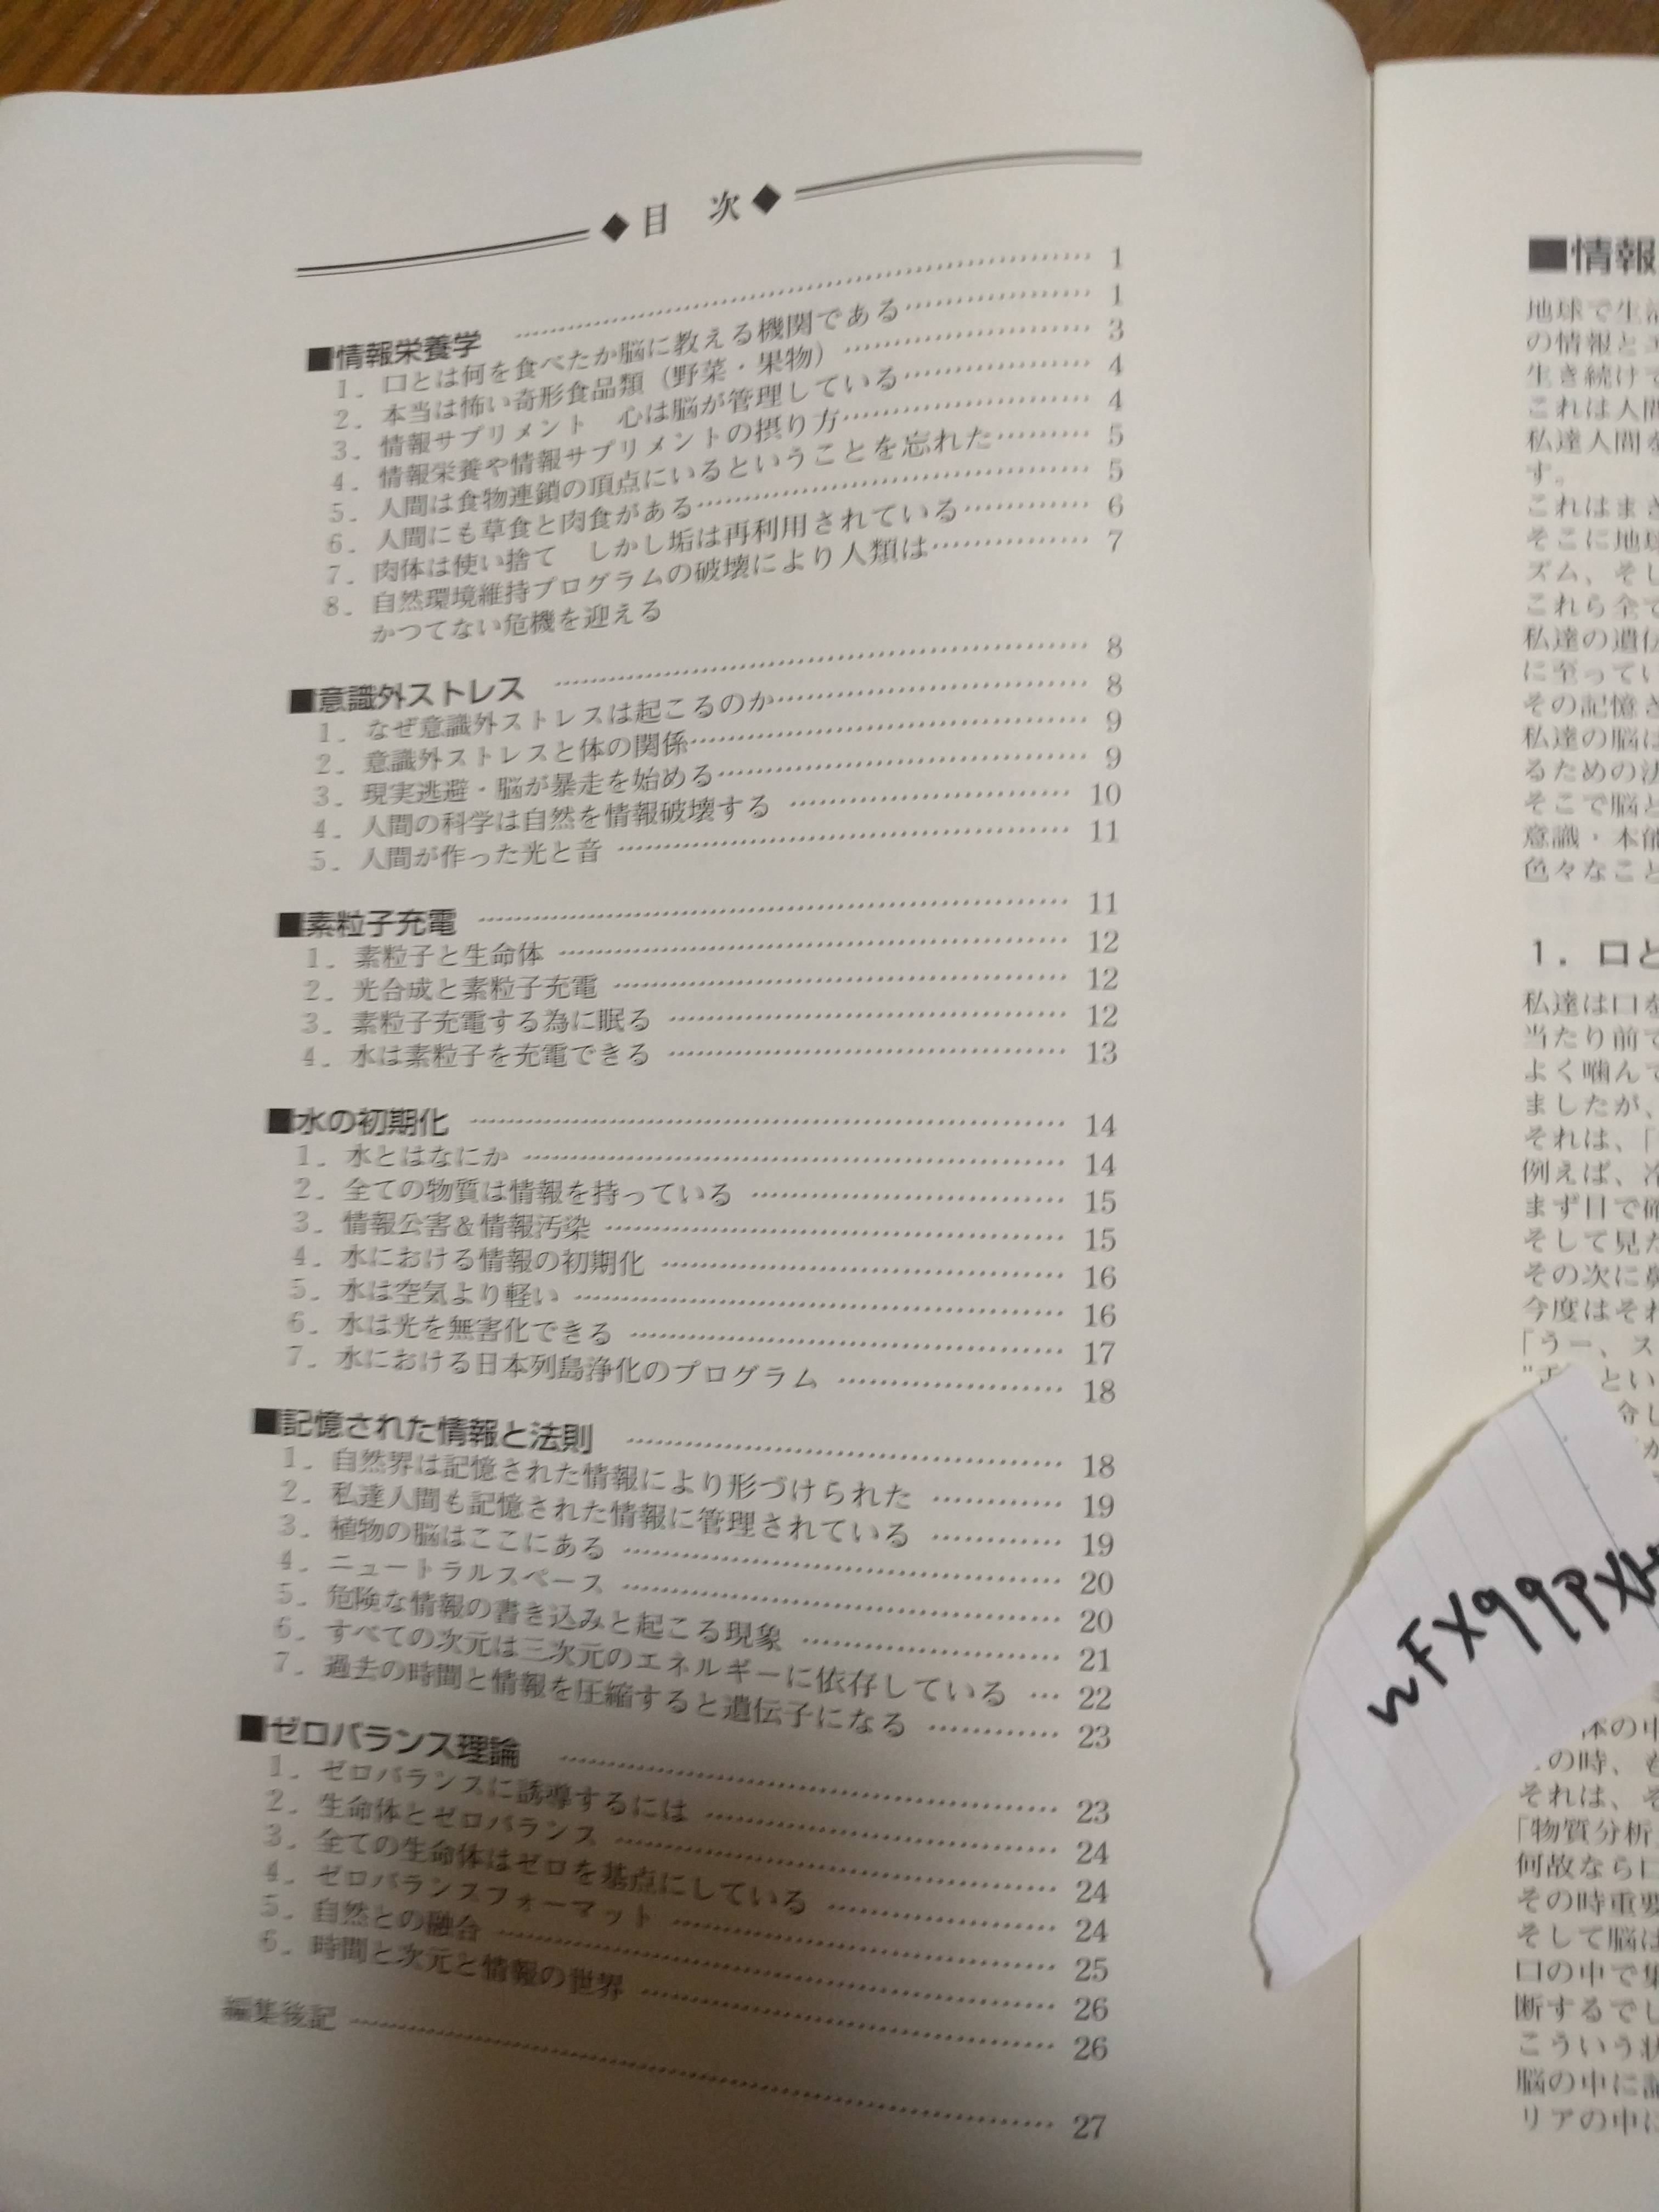 ◆目 次◆
■情報栄養学 …… 1
1．口とは何を食べたか脳に教える機関である …… 1
2．本当は怖い奇形食品類（野菜・果物） …… 3
3．情報サプリメント 心は脳が管理している …… 4
4．情報栄養や情報サプリメントの摂り方 …… 4
5．人間は食物連鎖の頂点にいるということを忘れた …… 5
6．人間にも草食と肉食がある …… 5
7．肉体は使い捨て しかし垢は再利用されている …… 6
8．自然環境維持プログラムの破壊により人類は …… 7
かつてない危機を迎える
■意識外ストレス …… 8
1．なぜ意識外ストレスは起こるのか …… 8
2．意識外ストレスと体の関係 …… 9
3．現実逃避・脳が暴走を始める …… 9
4．人間の科学は自然を情報破壊する …… 10
5．人間が作った光と音 …… 11
■素粒子充電 …… 11
1．素粒子と生命体 …… 12
2．光合成と素粒子充電 …… 12
3．素粒子充電する為に眠る …… 12
4．水は素粒子を充電できる …… 13
■水の初期化 …… 14
1．水とはなにか …… 14
2．全ての物質は情報を持っている …… 15
3．情報公害&情報汚染 …… 15
4．水における情報の初期化 …… 16
5．水は空気より軽い …… 16
6．水は光を無害化できる …… 17
7．水における日本列島浄化のプログラム …… 18
■記憶された情報と法則 …… 18
1．自然界は記憶された情報により形づけられた …… 19
2．私達人間も記憶された情報に管理されている …… 19
3．植物の脳はここにある …… 20
4．ニュートラルスペース …… 20
5．危険な情報の書き込みと起こる現象 …… 21
6．すべての次元は三次元のエネルギーに依存している … 22
7．過去の時間と情報を圧縮すると遺伝子になる …… 23
■ゼロバランス理論 …… 23
1．ゼロバランスに誘導するには …… 24
2．生命体とゼロバランス …… 24
3．全ての生命体はゼロを基点にしている …… 24
4．ゼロバランスフォーマット …… 25
5．自然との融合 …… 26
6．時間と次元と情報の世界 …… 26
編集後記 …… 27
■情報
地球で生活
の情報とエ
生き続けて
これは人間
私達人間を
す。
これはまさ
そこに地球
ズム、そし
これら全て
私達の遺伝
に至ってい
その記憶さ
私達の脳は
るための法
そこで脳と
意識・本能
色々なこと
1．口と
私達は口を
当たり前で
よく噛んで
ましたが、
それは、「
例えば、冷
まず目で確
そして見た
その次に鼻
今度はそれ
「うー、ス
とい
令し
が
wFX99PX
体の中
の時、も
それは、そ
「物質分析
何故なら口
その時重要
そして脳は
口の中で集
断するでし
こういう状
脳の中に記
リアの中に